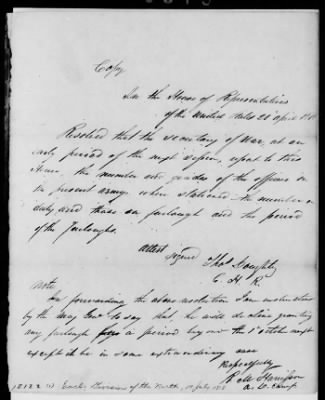 Copy
In the House of Representatives
of the United States 20 April
Resolved that the secretary of War, at an
early period of the next session, report to this
House, the number and grades of the officers in
the present army where stationed the number on
duty and those on furlough and the period
of the furloughs.
Attest
Signed Thos Doughty
C. H. R.
Note
In forwarding the above resolution I am instructed
by the May. Genl to say that he will decline granting
any furlough for a period beyond the 1st October next
except it be in some extraordinary case
Respectfully
R. M. Harrison
A. D. Camp
Division of the North, July